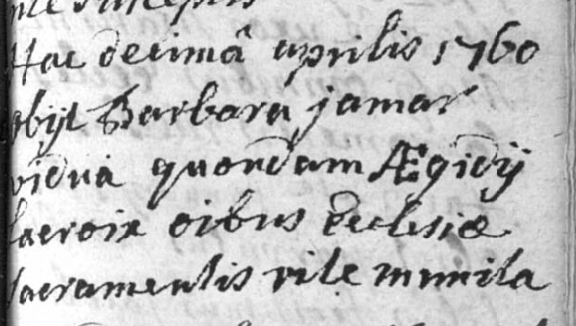 Hac decimâ aprilis 1760
obijt Barbara jamar
vidua quondam Ægidij
lacroix oibus Ecclesiæ
sacramentis rite munita